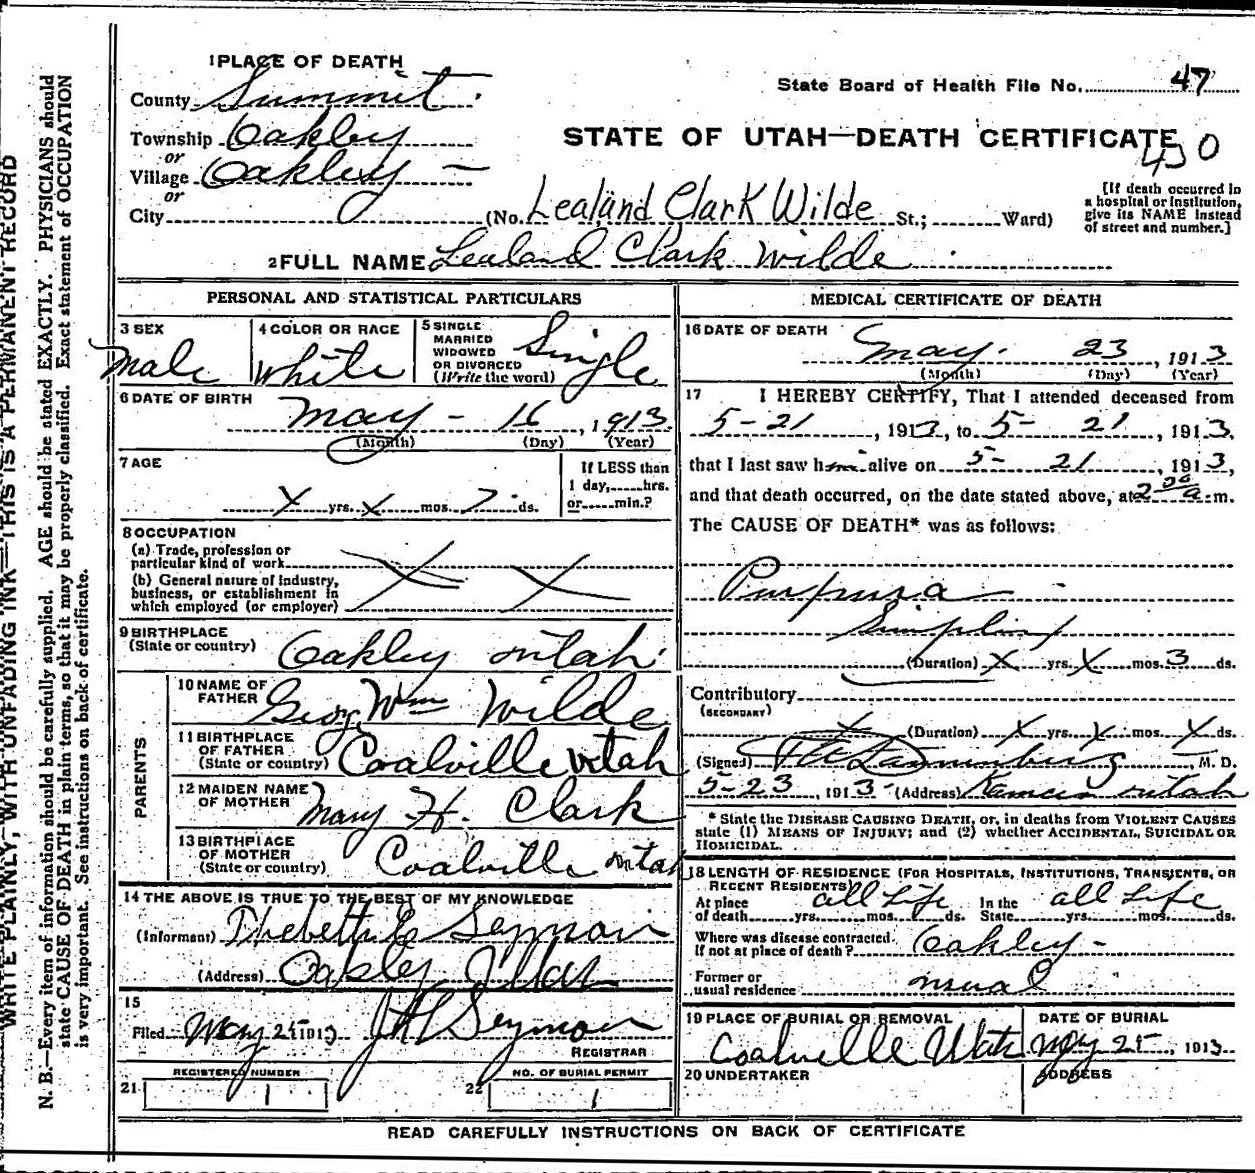 1 PLACE OF DEATH
County Summit.
State Board of Health File No. 47
Township Oakley
or
STATE OF UTAH—DEATH CERTIFICATE
Village Oakley —
or
City (No. Lealand Clark Wilde St.; Ward)
[If death occurred in
a hospital or institution,
give its NAME instead
of street and number.]
2 FULL NAME Lealand Clark Wilde
PERSONAL AND STATISTICAL PARTICULARS
3 SEX
male
4 COLOR OR RACE
white
5 SINGLE
MARRIED
WIDOWED
OR DIVORCED
(Write the word)
Single
6 DATE OF BIRTH
May - 16, 1913
(Month) (Day) (Year)
7 AGE
X yrs. X mos. 7 ds.
If LESS than
1 day,......hrs.
or......min.?
8 OCCUPATION
(a) Trade, profession or
particular kind of work
(b) General nature of industry,
business, or establishment in
which employed (or employer)
X X
9 BIRTHPLACE
(State or country) Oakley Utah
PARENTS
10 NAME OF
FATHER Geo. Wm Wilde
11 BIRTHPLACE
OF FATHER
(State or country) Coalville Utah
12 MAIDEN NAME
OF MOTHER Mary H. Clark
13 BIRTHPLACE
OF MOTHER
(State or country) Coalville Utah
14 THE ABOVE IS TRUE TO THE BEST OF MY KNOWLEDGE
(Informant) Seymour
(Address) Oakley Utah
15
Filed May 25 1913 Seymour
REGISTRAR
REGISTERED NUMBER
21 1
NO. OF BURIAL PERMIT
22 1
MEDICAL CERTIFICATE OF DEATH
16 DATE OF DEATH
May. 23, 1913
(Month) (Day) (Year)
17 I HEREBY CERTIFY, That I attended deceased from
5-21, 1913, to 5- 21, 1913,
that I last saw him alive on 5- 21, 1913,
and that death occurred, on the date stated above, at 2 00 a.m.
The CAUSE OF DEATH* was as follows:
Purpura
Simplex
(Duration) X yrs. X mos. 3 ds.
Contributory
(SECONDARY)
(Duration) X yrs. X mos. X ds.
(Signed) , M. D.
5-23, 1913 (Address) Kamas Utah
* State the DISEASE CAUSING DEATH, or, in deaths from VIOLENT CAUSES
state (1) MEANS OF INJURY; and (2) whether ACCIDENTAL, SUICIDAL OR
HOMICIDAL.
18 LENGTH OF RESIDENCE (FOR HOSPITALS, INSTITUTIONS, TRANSIENTS, OR
RECENT RESIDENTS)
At place
of death......yrs......mos......ds. all Life
In the
State......yrs......mos......ds. all Life
Where was disease contracted.
If not at place of death? Oakley -
Former or
usual residence usual
19 PLACE OF BURIAL OR REMOVAL
Coalville Utah
DATE OF BURIAL
May 25, 1913
20 UNDERTAKER
ADDRESS
READ CAREFULLY INSTRUCTIONS ON BACK OF CERTIFICATE
WRITE PLAINLY, WITH UNFADING INK—THIS IS A PERMANENT RECORD
N. B.—Every item of information should be carefully supplied. AGE should be stated EXACTLY. PHYSICIANS should
state CAUSE OF DEATH in plain terms, so that it may be properly classified. Exact statement of OCCUPATION
is very important. See instructions on back of certificate.